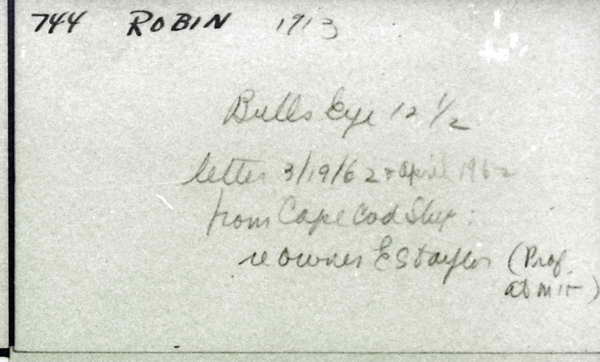 744 ROBIN 1913
Bulls Eye 12 1/2
letter 3/19/62 & April 1962
from Cape Cod Ship:
re owner E S Taylor (Prof.
at MIT)